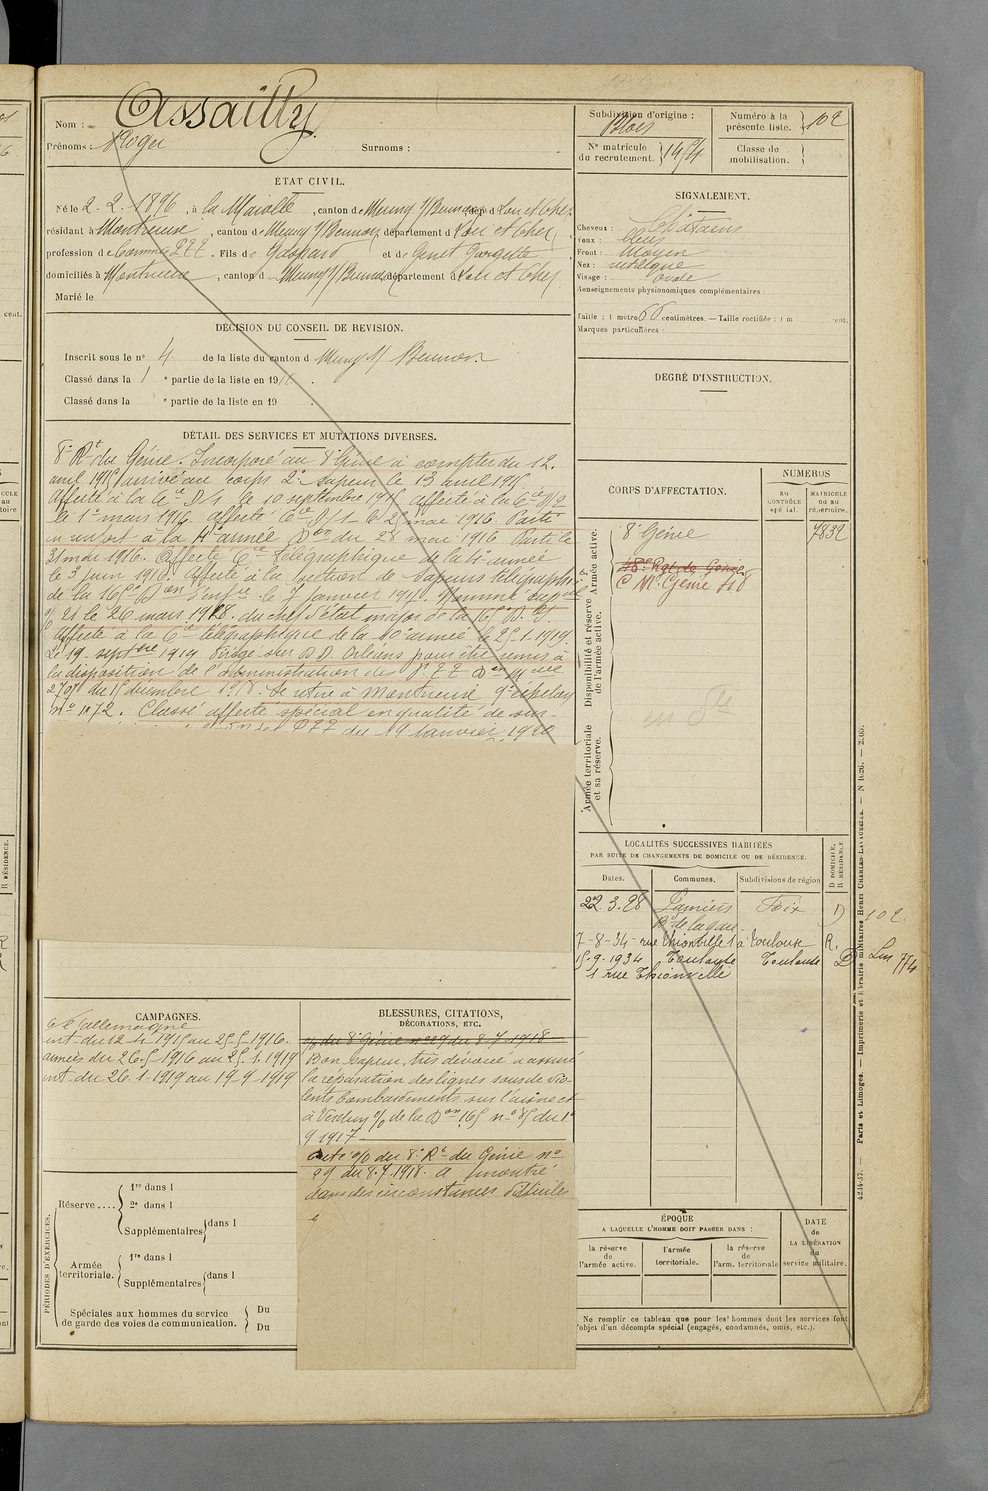 Nom : Assailly
Prénoms : Roger Surnoms :
Subdivision d'origine : Blois
Numéro à la présente liste. } 102
No matricule du recrutement. } 1454
Classe de mobilisation. }
ÉTAT CIVIL.
Né le 2-2-1896, à la Marolle, canton de Neung s/ Beuvron, dépt d Loir et Cher
résidant à Montrieux, canton de Neung s/ Beuvron, département d Loir et Cher,
profession de Commis PTT. Fils de Gaspard et de Genet Georgette,
domiciliés à Montrieux, canton d Neung s/ Beuvron département d Loir et Cher
Marié le
SIGNALEMENT.
Cheveux : Châtains
Yeux : bleus
Front : moyen
Nez : rectiligne
Visage : ovale
Renseignements physionomiques complémentaires :
Taille : 1 mètre 66 centimètres. — Taille rectifiée : 1 m cent.
Marques particulières :
DÉCISION DU CONSEIL DE REVISION.
Inscrit sous le no 4 de la liste du canton d Neung s/ Beuvron
Classé dans la 1 e partie de la liste en 19
Classé dans la e partie de la liste en 19
DEGRÉ D'INSTRUCTION.
DÉTAIL DES SERVICES ET MUTATIONS DIVERSES.
8e Rt du Génie. Incorporé au 8e Génie à compter du 12
avril 1915 arrivé au corps 2e sapeur le 13 avril 1915
affecté à la Cie D1 le 10 septembre 1915 affecté à la Cie D2
le 1er mars 1916 affecté Cie D1 le 25 mai 1916 Parti
en renfort à la 4e armée Don du 28 mai 1916 Parti le
31 mai 1916. Affecté Cie Télégraphique de la 4e armée
le 3 juin 1916. Affecté à la section de sapeurs télégraph
de la 165e Don d'Infie le 7 janvier 191 . Nommé caporal
le 26 mars 1918. du chef d'état major de la 165e D.I.
Affecté à la Cie télégraphique de la 10e armée le 25.1.1919
Le 19 septbre 1919 dirigé sur DD Orléans pour être remis à
la disposition de l'administration des PTT Don Mlle
du 15 décembre 1918. Se retire à Montrieux
no 1072. Classé affecté spécial en qualité de sur-
PTT du 19 Janvier 1920
CORPS D'AFFECTATION.
NUMÉROS
AU CONTRÔLE spécial.
MATRICULE ou au répertoire.
Disponibilité et réserve de l'armée active.
Armée active.
Armée territoriale et sa réserve.
8e Génie 7832
18e Rgt de Génie
C M. Génie
LOCALITÉS SUCCESSIVES HABITÉES
PAR SUITE DE CHANGEMENTS DE DOMICILE OU DE RÉSIDENCE.
Dates. Communes. Subdivisions de région D DOMICILE, R RÉSIDENCE
22.3.28 Pamiers Foix D
Bd de la gare
7-8-34 rue Thionville 1 à Toulouse R.
15-9-1934 Toulouse Toulouse D
1 rue Thionville
102
774
CAMPAGNES.
C/ l'allemagne
int du 12-4-1915 au 25-5-1916.
armées du 26-5-1916 au 25-1-1919
int. du 26-1-1919 au 19-9-1919
BLESSURES, CITATIONS,
DÉCORATIONS, ETC.
o/o du 8e Génie no 99 du 8-7-1918
Bon sapeur, très dévoué a assuré
la réparation des lignes sous de vio-
lents bombardements sur l'Aisne et
à Verdun o/ de la Don 165 no 85 du 1er
9 1917
Cité o/o du 8e Rt du Génie no
99 du 8.7.1918. A montré
dans des circonstances difficiles
PÉRIODES D'EXERCICES.
Réserve .... { 1re dans l
2e dans l
Supplémentaires { dans l
Armée territoriale. { 1re dans l
Supplémentaires { dans l
Spéciales aux hommes du service
de garde des voies de communication. } Du
Du
ÉPOQUE
A LAQUELLE L'HOMME DOIT PASSER DANS :
la réserve de l'armée active.
l'armée territoriale.
la réserve de l'arm. territoriale
DATE de LA LIBÉRATION du service militaire.
Ne remplir ce tableau que pour les hommes dont les services font
l'objet d'un décompte spécial (engagés, condamnés, omis, etc.).
4234-37. — Paris et Limoges. — Imprimerie et librairie militaires Henri CHARLES-LAVAUZELLE. — N 1026. — 2.05.